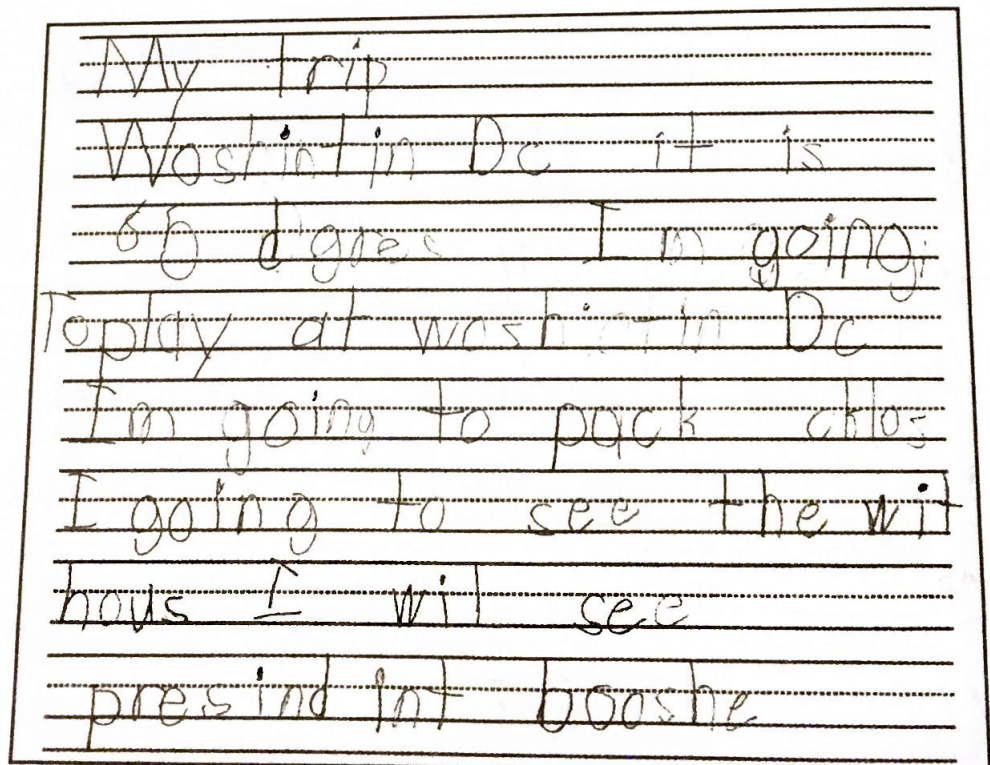 My trip
Woshintin Dc it is
65 d'gres I m going
To play at woshintin Dc
I'm going to pack chlos
I going to see the wit
hous I wil see
presind int booshe